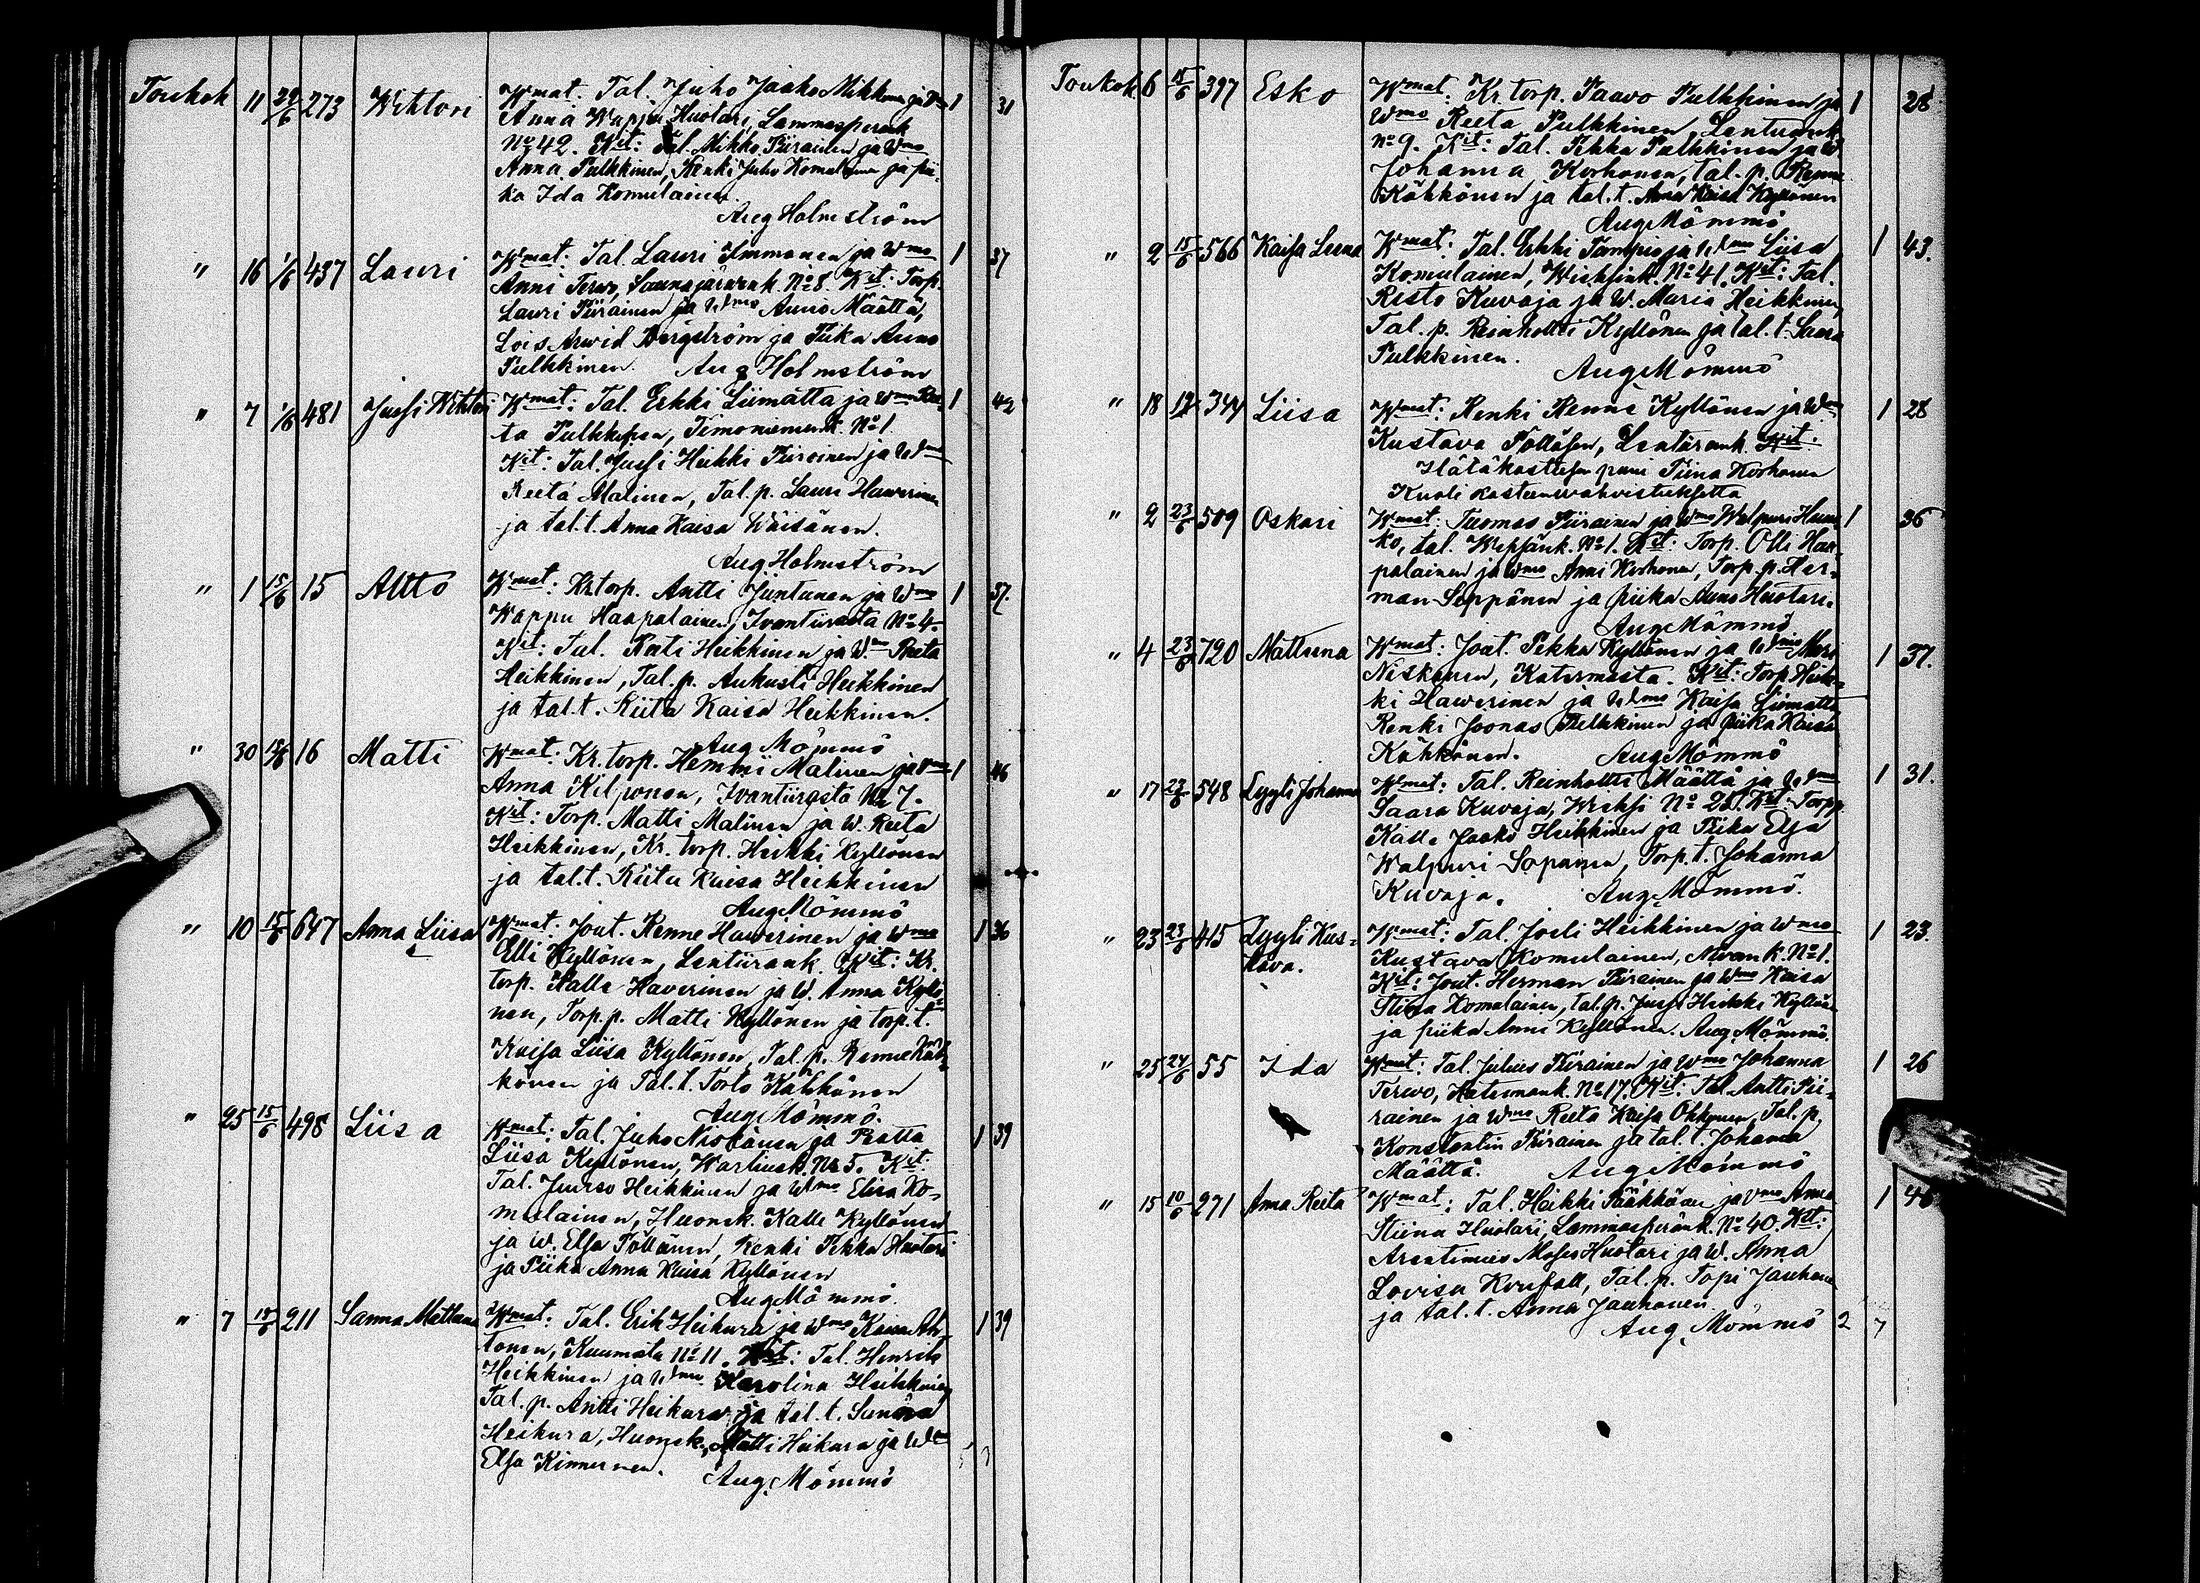 Toukok 11 29/6 273 Wihtori Wmat: Tal. Juho Jaako Mikkonen ja Wmo 1 31
Anna Wappu Huotari, Lammasperänk
No 42. Kit: Tal. Mikko Piirainen ja Wmo
Anna Pulkkinen, Renki Juho Komulainen ja pii-
ka Ida Komulainen.
Aug Holmström
" 16 1/6 437 Lauri Wmat: Tal. Lauri Immonen ja Wmo 1 37
Anni Terwo, Saunajärwenk. No 8. Kit: Torp.
Lauri Piirainen ja Wmo Anna Määttä,
Lois Arwid Bergström ja Piika Anna
Pulkkinen. Aug Holmström
" 7 1/6 481 Jussi Wihtori Wmat: Tal. Erkki Liimatta ja Wmo Ree- 1 42
ta Pulkkinen, Timoniemenk. No 1.
Kit: Tal. Jussi Heikki Piirainen ja Wmo
Reeta Malinen, Tal. p. Lauri Hawerinen
ja tal. t. Anna Kaisa Wäisänen.
Aug. Holmström
" 1 15/6 15 Altto Wmat: Kr. torp. Antti Juntunen ja Wmo 1 37.
Wappu Haapalainen, Iwantiirasta No 4.
Kit: Tal. Pati Heikkinen ja W.mo Reeta
Heikkinen, Tal. p. Aukusti Heikkinen
ja tal. t. Riita Kaisa Heikkinen.
Aug Mömmö
" 30 15/6 16 Matti Wmat: Kr. torp. Hemmi Malinen ja Wmo 1 46
Anna Kilponen, Iwantiirasta No 7.
Kit: Torp. Matti Malinen ja W. Reeta
Heikkinen, Kr. torp. Heikki Kyllönen
ja tal. t. Riita Kaisa Heikkinen
Aug Mömmö
" 10 15/6 647 Anna Liisa Wmat: Jout. Renne Hawerinen ja Wmo 1 36
Elli Kyllönen, Lentiirank. Kit: Kr.
torp. Kalle Haverinen ja W. Anna Kyllö-
nen, Torp. p. Matti Kyllönen ja torp. t.
Kaisa Liisa Kyllönen, Tal. p. Renne Käh-
könen ja Tal. t. Kähkönen
Aug Mömmö.
" 25 15/6 498 Liisa Wmat: Tal. Juho Niskanen ja Reetta 1 39
Liisa Kyllönen, Wartiusk. No 5. Kit:
Tal. Juurso Heikkinen ja Wmo Elisa Ko-
mulainen, Huonek. Kalle Kyllönen
ja W. Elsa Pöllänen, Renki Pekka Huotari
ja Piika Anna Kaisa Kyllönen
Aug Mömmö.
" 7 15/6 211 Sanna Mattleena Wmat: Tal. Erik Heikura ja Wmo Ah- 1 39
tonen, Kuumala No 11. Kit: Tal. Henrik
Heikkinen ja Wmo Karolina Heikkinen,
Tal. p. Antti Heikura ja tal. t. Sanna
Heikura, Huonek. Matti Heikura ja Wmo
Elsa Kinnunen. Aug. Mömmö
Toukok 6 15/6 397 Esko Wmat: Kr torp. Paavo Pulkkinen ja 1 28
Wmo Reeta Pulkkinen, Lentuank
No 9. Kit: Tal. Pekka Pulkkinen ja W.
Johanna Korhonen, tal. p. Renne
Kähkönen ja tal. t. Anna Kaisa Kyllönen
Aug Mömmö
" 2 15/6 566 Kaisa Leena Wmat: Tal. Erkki Tampio ja Wmo Liisa 1 43.
Komulainen, Wieksink. No 41. Kit: Tal.
Risto Kuvaja ja W. Maria Heikkinen,
Tal. p. Reinholtti Kyllönen ja tal. t. Saara
Pulkkinen. Aug Mömmö
" 18 344 Liisa Wmat: Renki Renne Kyllönen ja Wmo 1 28
Kustava Pöllänen, Lentiirank. Kit:
Hätäkasteesen pani Tiina Korhonen
Kuoli kasteenwahvistuksetta
" 2 23/6 509 Oskari Wmat: Tuomas Piirainen ja Wmo Walpuri Haw- 1 36
ko, tal. Wepsänk. No 1. Kit: Torp. Olli Haa-
palainen ja Wmo Anni Korhonen, Torp. p. Her-
man Seppänen ja piika Anna Huotari.
Aug Mömmö
" 4 23/6 720 Mattleena Wmat: Jout. Pekka Kyllönen ja Wmo Mari 1 37.
Niskanen, Katermasta. Kit: Torp. Heik-
ki Hawerinen ja Wmo Kaisa Liimatta,
Renki Joonas Pulkkinen ja piika Kaisa
Kähkönen. Aug Mömmö
" 17 23/6 548 Lyyli Johanna Wmat: Tal. Reinholtti Määttä ja Wmo 1 31.
Saara Kuvaja, Wieksi No 25. Kit: Torpp.
Kalle Jaako Heikkinen ja Piika Elsa
Walpuri Sopanen, Torp. t. Johanna
Kuvaja. Aug. Mömmö.
" 23 23/6 415 Lyyli Kus- Wmat: Tal. Joeli Heikkinen ja Wmo 1 23.
tava. Kustava Komulainen, Nivank. No 1.
Kit: Jout. Herman Piirainen ja Wmo Kaisa
Stiina Komulainen, tal. p. Jussi Heikki Kyllönen
ja piika Anni Kyllönen. Aug. Mömmö.
" 25 24/6 55 Ida Wmat: Tal. Julius Piirainen ja Wmo Johanna 1 26
Terwo, Katermank. No 17. Kit: Tal. Antti Pii-
rainen ja Wmo Reeta Kaisa Ohtonen, Tal. p.
Konstantin Piirainen ja tal. t. Johanna
Määttä. Aug Mömmö
" 15 10/6 271 Anna Reeta Wmat: Tal. Heikki Pääkkönen ja Wmo Anna 1 46
Stiina Huotari, Lammasperänk. No 40. Kit:
Moses Huotari ja W. Anna
Lovisa, Tal. p. Topi Jauhonen
ja tal. t. Anna Jauhonen.
Aug. Mömmö 2 7